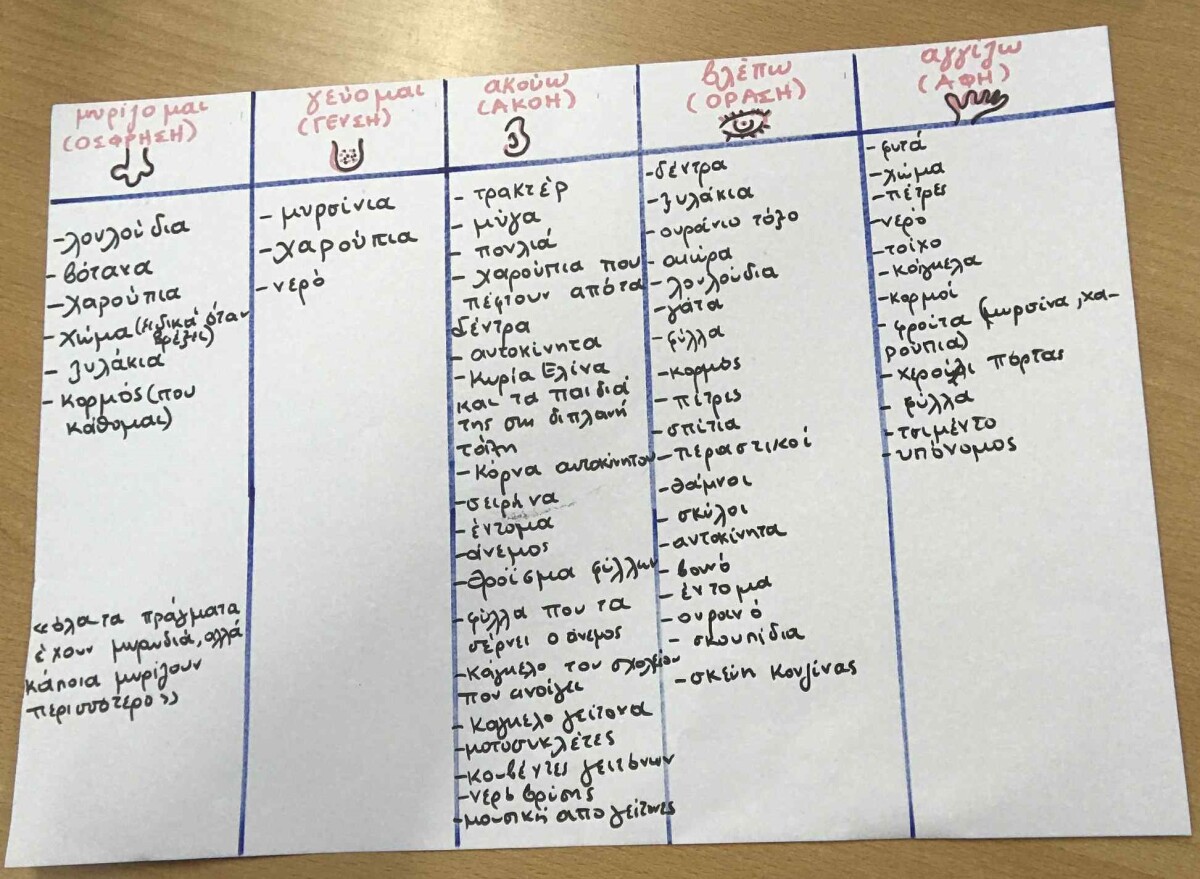 μυρίζομαι
(ΟΣΦΡΗΣΗ)
-λουλούδια
-βότανα
-χαρούπια
-χώμα (ειδικά όταν
βρέξει)
-ξυλάκια
-κορμός (που
κάθομαι)
«όλα τα πράγματα
έχουν μυρωδιά, αλλά
κάποια μυρίζουν
περισσότερο»
γεύομαι
(ΓΕΥΣΗ)
-μυρσίνια
-χαρούπια
-νερό
ακούω
(ΑΚΟΗ)
-τρακτέρ
-μύγα
-πουλιά
-χαρούπια που
πέφτουν από τα
δέντρα
-αυτοκίνητα
-Κυρία Ελίνα
και τα παιδιά
της στη διπλανή
τάξη
-κόρνα αυτοκινήτου
-σειρήνα
-έντομα
-άνεμος
-θρόϊσμα φύλλων
-φύλλα που τα
σέρνει ο άνεμος
-κάγκελο του σχολείου
που ανοίγει
-κάγκελο γείτονα
-μοτοσυκλέτες
-κουβέντες γειτόνων
-νερό βρύσης
-μουσική από γείτονες
βλέπω
(ΟΡΑΣΗ)
-δέντρα
-ξυλάκια
-ουράνιο τόξο
-αιώρα
-λουλούδια
-γάτα
-φύλλα
-κορμός
-πέτρες
-σπίτια
-περαστικοί
-θάμνοι
-σκύλοι
-αυτοκίνητα
-βουνό
-έντομα
-ουρανό
-σκουπίδια
-σκεύη κουζίνας
αγγίζω
(ΑΦΗ)
-φυτά
-χώμα
-πέτρες
-νερό
-τοίχο
-κάγκελα
-κορμοί
-φρούτα (μυρσίνα, χα-
ρούπια)
-χερούλι πόρτας
-φύλλα
-τσιμέντο
-υπόνομος